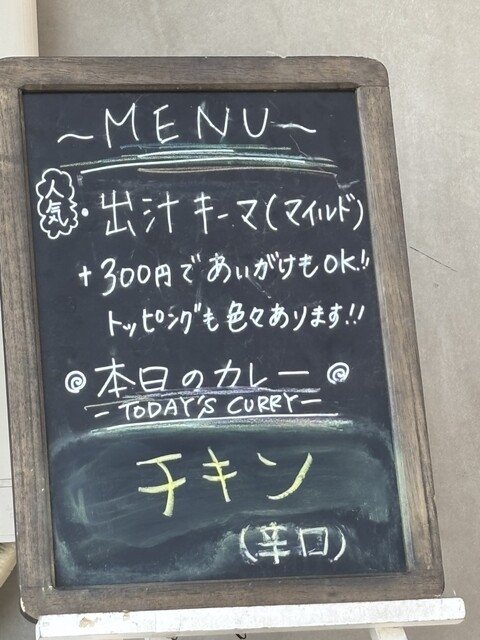 ～MENU～
人気・出汁キーマ(マイルド)
+300円であいがけもOK!!
トッピングも色々あります!!
本日のカレー
-TODAY'S CURRY-
チキン
(辛口)